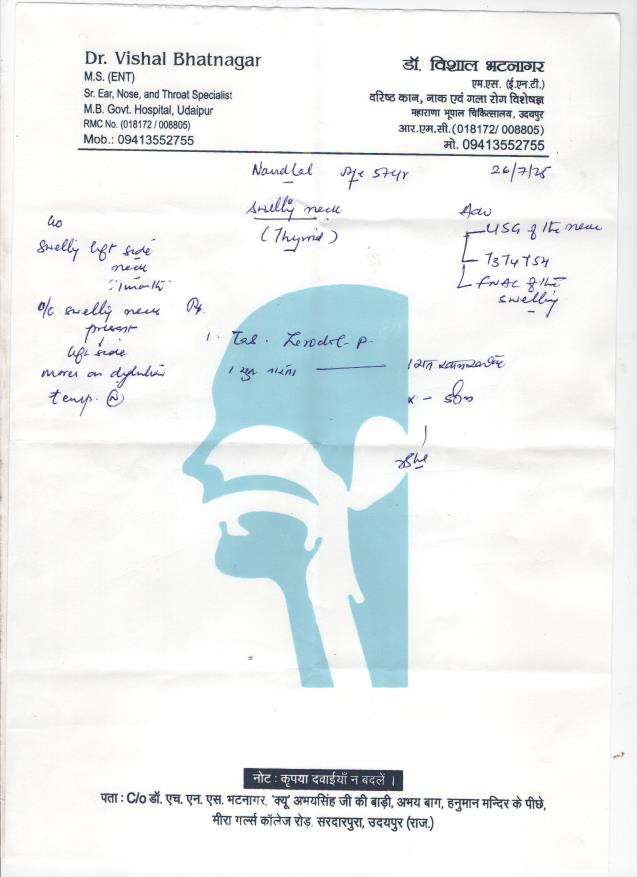 Dr. Vishal Bhatnagar
M.S. (ENT)
Sr. Ear, Nose, and Throat Specialist
M.B. Govt. Hospital, Udaipur
RMC No. (018172 / 008805)
Mob.: 09413552755
डॉ. विशाल भटनागर
एम.एस. (ई.एन.टी.)
वरिष्ठ कान, नाक एवं गला रोग विशेषज्ञ
महाराणा भूपाल चिकित्सालय, उदयपुर
आर.एम.सी.(018172/ 008805)
मो. 09413552755
Nandlal 57yr 26/7/25
Swelling neck
(Thyroid)
c/o
Swelling left side
neck
1 month
O/E swelling neck
present
left side
moves on deglutition
temp. (N)
Adv
USG of the neck
T3 T4 TSH
FNAC of the
swelling
Rx.
1. Tab. Zerodol-P
नोट : कृपया दवाईयाँ न बदलें ।
पता : C/o डॉ. एच. एन. एस. भटनागर, 'क्यू' अभयसिंह जी की बाड़ी, अभय बाग, हनुमान मन्दिर के पीछे,
मीरा गर्ल्स कॉलेज रोड़. सरदारपुरा, उदयपुर (राज.)